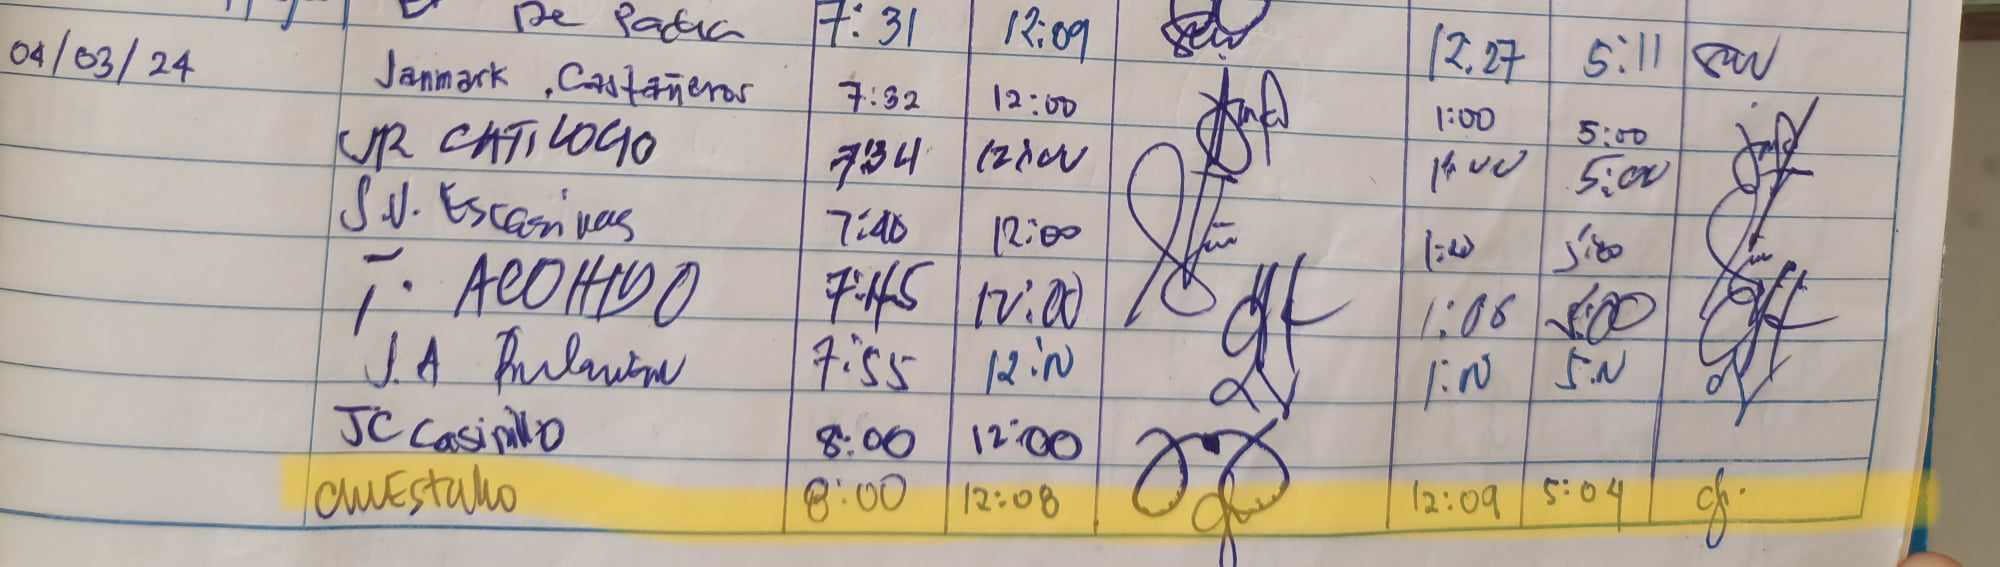 De Padua 7:31 12:09 12:27 5:11
04/03/24 Janmark Castañeros 7:32 12:00 1:00 5:00
JR CATILOGO 7:34 12:00 1:00 5:00
S.V. Escasinas 7:40 12:00 1:00 5:00
J. ACOHIDO 7:45 12:00 1:06 5:00
J.A 7:55 12:N 1:N 5:N
JC Casinillo 8:00 12:00
8:00 12:08 12:09 5:04